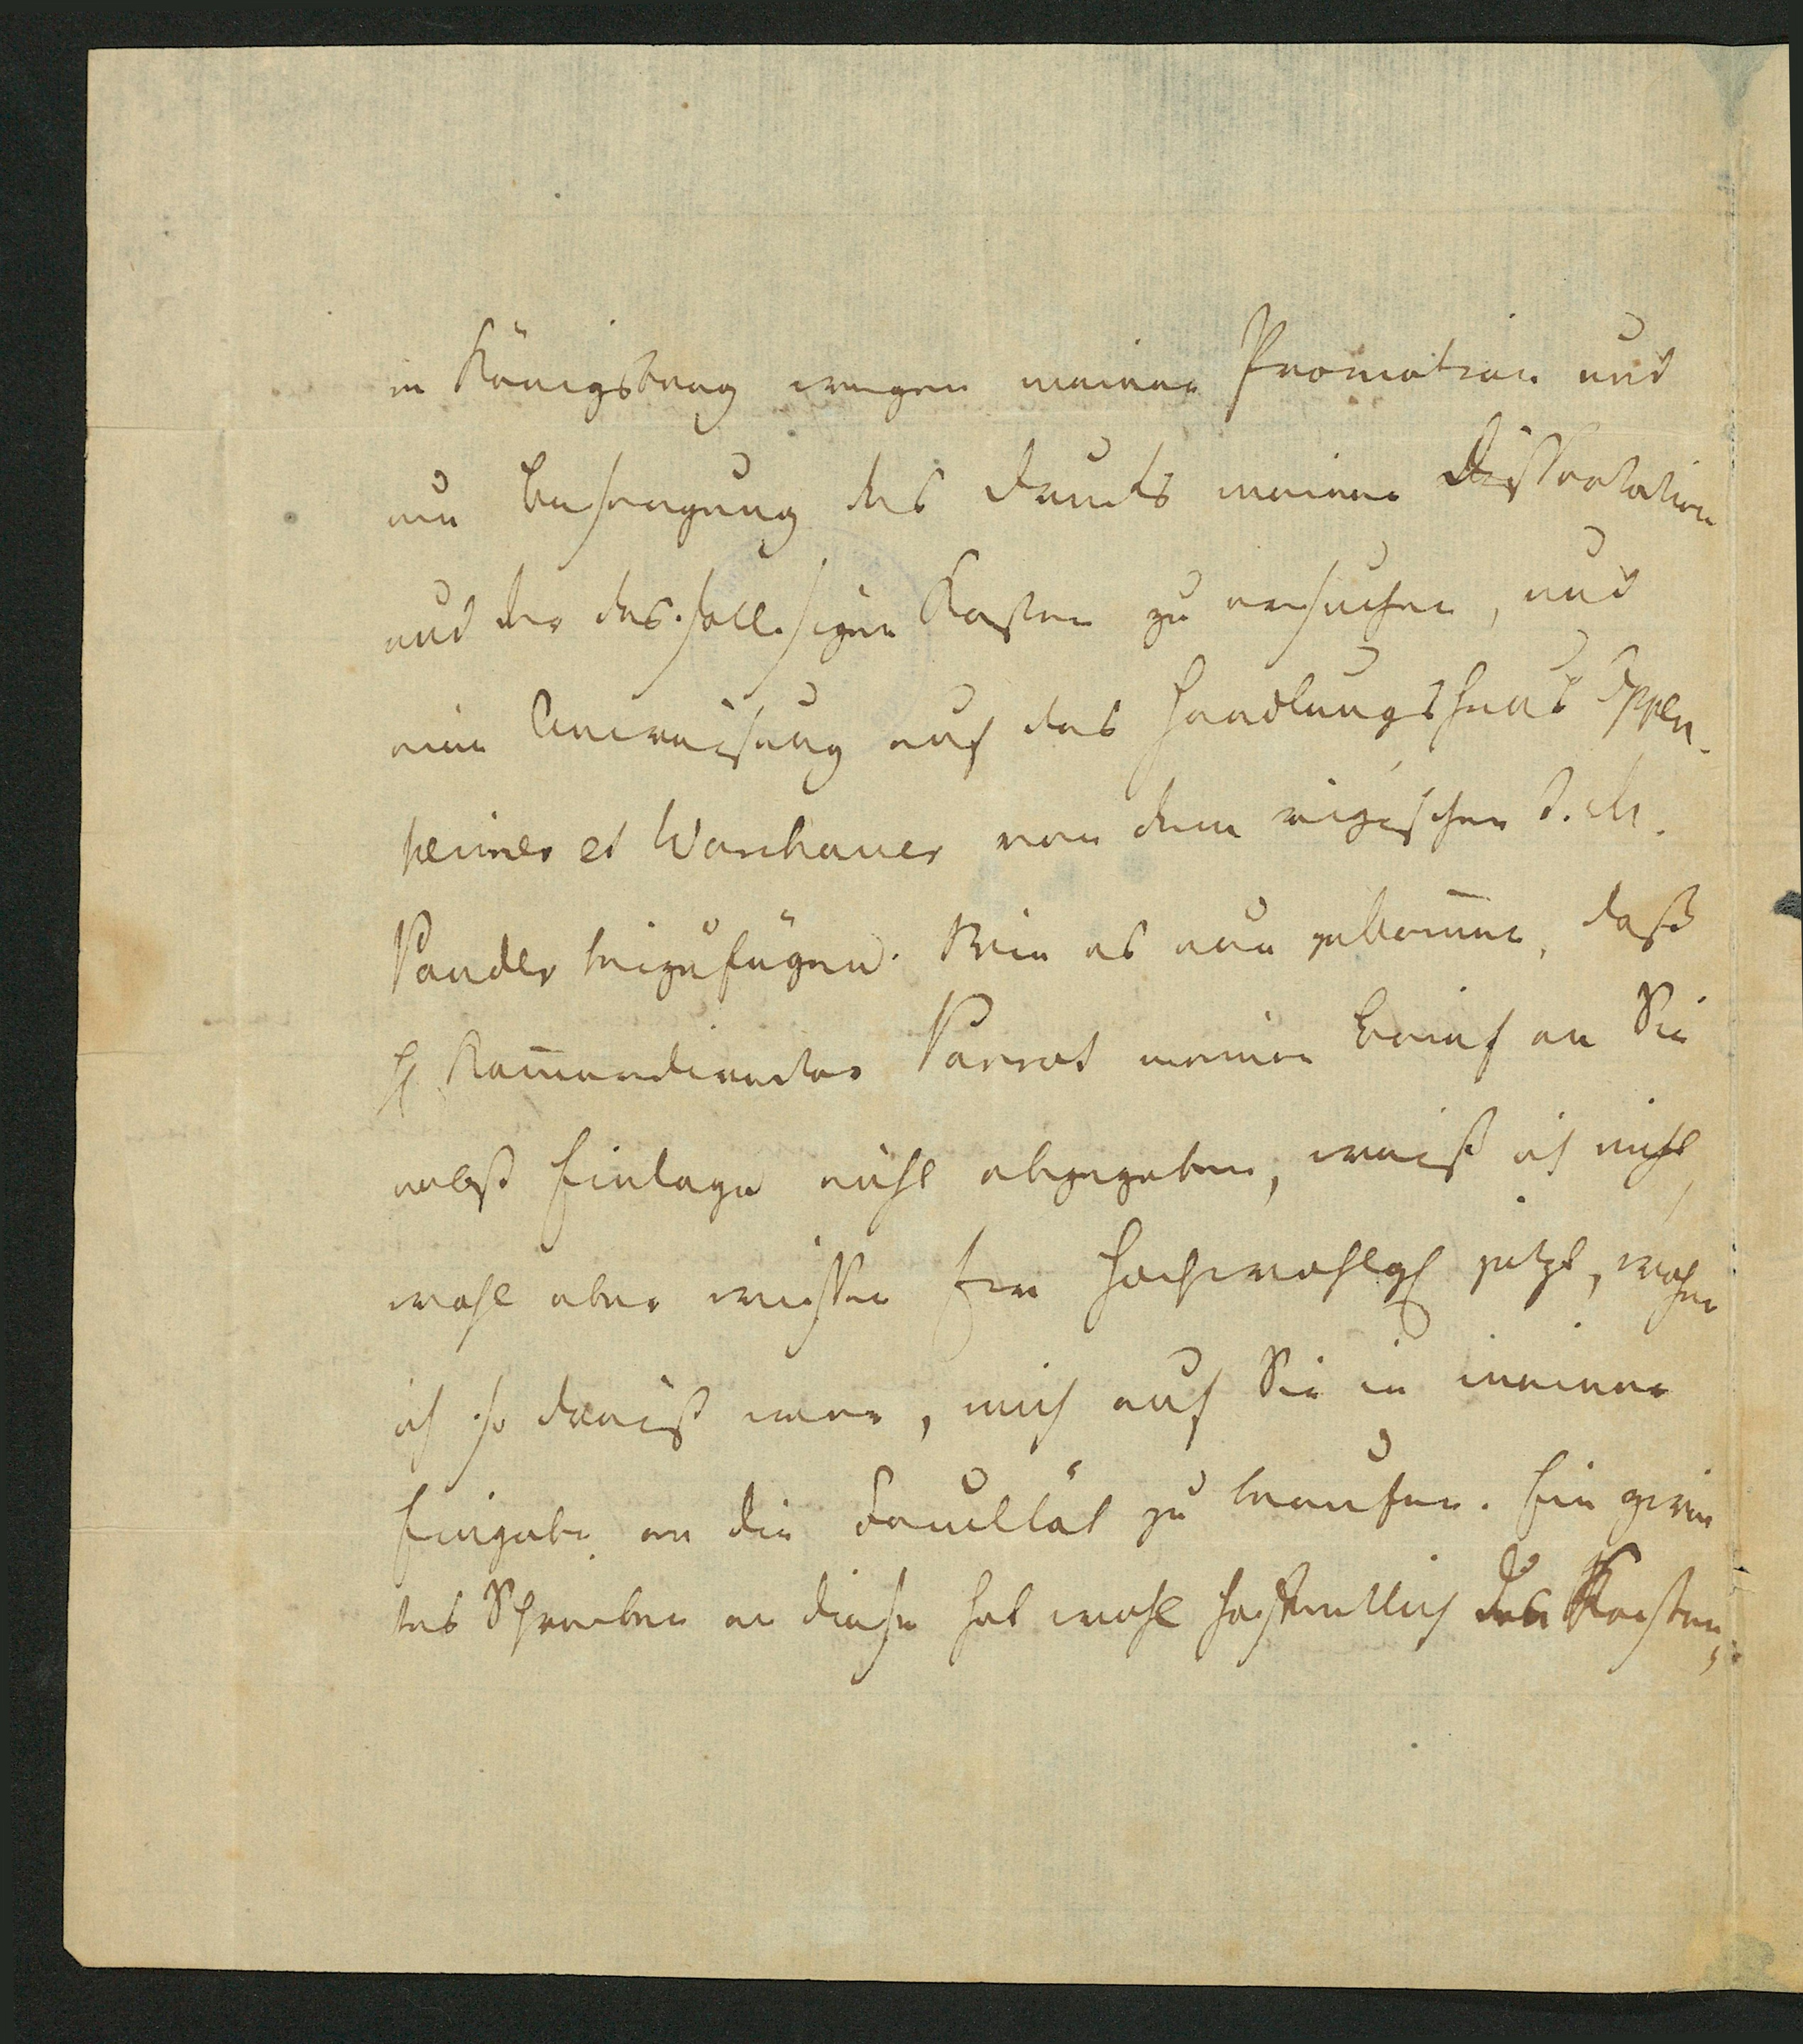 in Königsberg wegen meiner Promotion und
um Besorgung des Drucks meiner Dissertation
und der desfallsigen Kosten zu ersuchen, und
eine Anweisung auf das Handlungshaus Oppen-
heimer et Warschauer von dem rigischen
Pander beizufügen. Wie es nun gekom̄en, daß
H Kam̄erdirector Parrot meinen Brief an Sie
nebst Einlage nicht abgegeben, weiß ich nicht,
wohl aber wissen Ew Hochwohlgb jetzt, woher
ich so dreist war, mich auf Sie in meiner
Eingabe an die Facultät zu berufen. Ein zwei
tes Schreiben an diese hat wohl hoffentlich den Kosten,